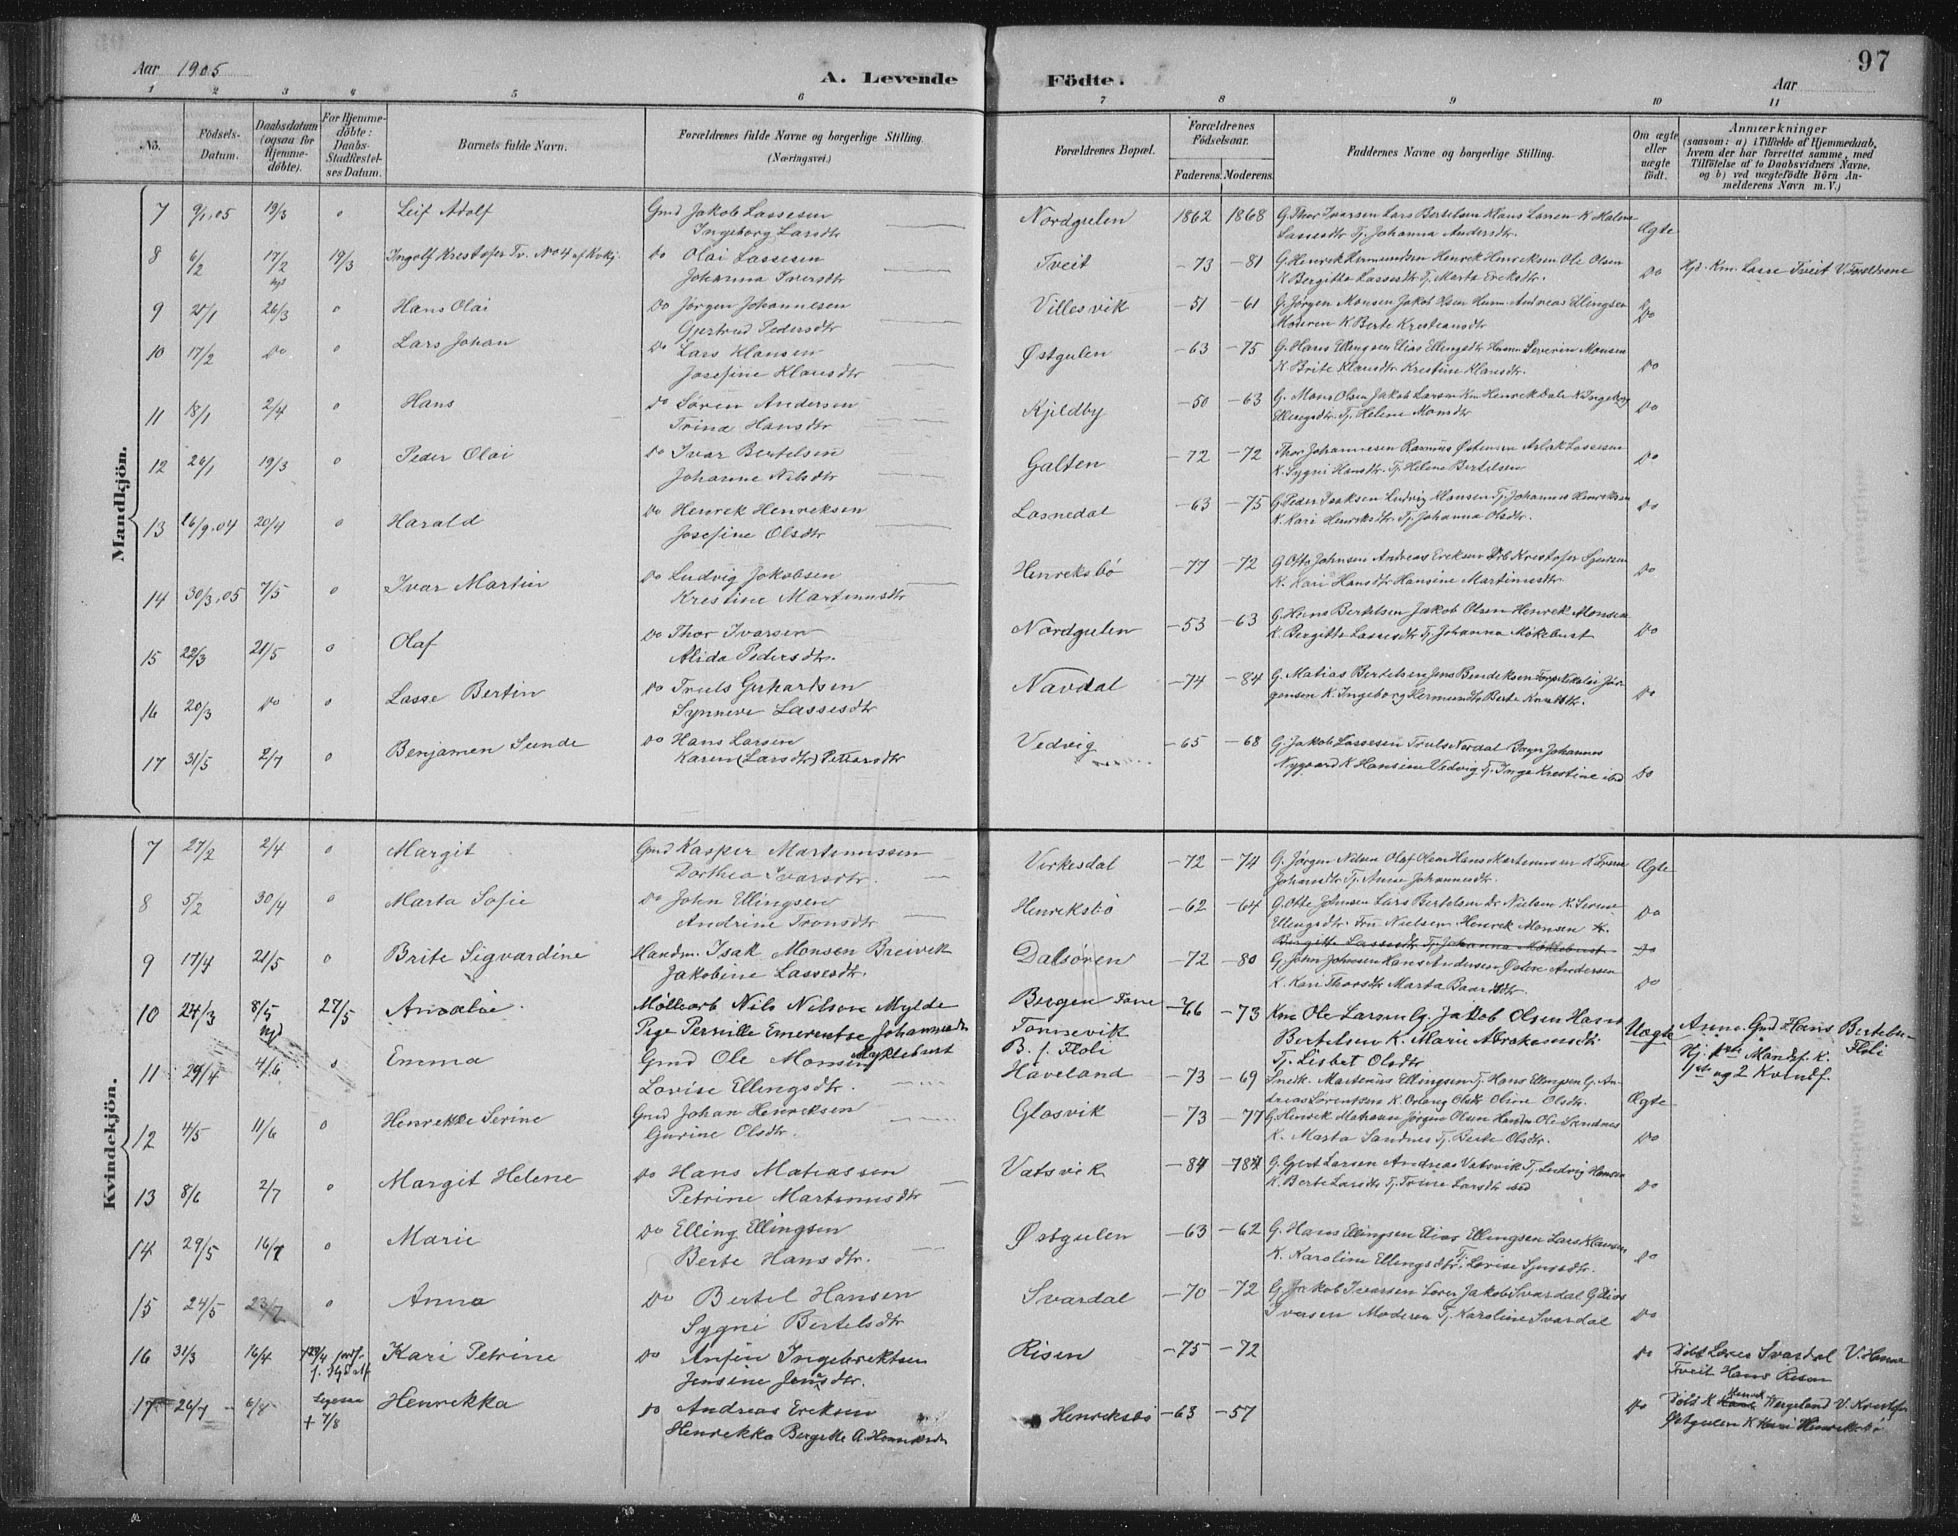 97
Aar 1905
A. Levende Födte.
Aar
1 2 3 4 5 6 7 8 9 10 11
No.
Födsels-Datum.
Daabsdatum (ogsaa for Hjemme-døbte).
For Hjemme-døbte: Daabs-Stadfæstel-ses Datum.
Barnets fulde Navn.
Forældrenes fulde Navne og borgerlige Stilling.
(Næringsvei.)
Forældrenes Bopæl.
Forældrenes Födselsaar.
Faderens. Moderens.
Faddernes Navne og borgerlige Stilling.
Om ægte eller uægte født.
Anmærkninger
(saasom: a) i Tilfælde af Hjemmedaab, hvem der har forrettet samme, med Tilföielse af to Daabsvidners Navne, og b) ved uægtefödte Börn An-melderens Navn m. V.)
Mandkjön.
7 9/1.05 19/3 0 Leif Adolf Gmd Jakob Lassesen Nordgulen 1862 1868 G. Thor Ivarsen Lars Bertelsen Hans Larsen K Malene
Ingeborg Larsdtr Lassesdtr Tj. Johanna Andersdtr. Ægte
8 6/2 17/2 hjd 19/3 Ingolf Krestofer Tv. No 4 af Kvkj. Do Olai Lassesen Tveit -73 -81 G. Henrik Hermundsen Henrik Henriksen Ole Olsen Do Hjd. Km. Lasse Tveit V. Forældrene
Johanna Iversdtr K Bergitta Lassesdtr Tj. Marta Eriksdtr.
9 21/1 26/3 0 Hans Olai Do Jørgen Johannesen Villesvik -51 -61 G. Jørgen Monsen Jakob Olsen Husm Andreas Ellingsen Do
Gjertrud Pedersdtr Moderen K Berte Kresteansdtr
10 17/2 Do 0 Lars Johan Do Lars Klausen Østgulen -63 -75 G. Hans Ellingsen Elias Ellingsdtr Husm Severin Monsen Do
Josefine Klausdtr K Brite Klausdtr Krestine Klausdtr.
11 18/1 2/4 0 Hans Do Søren Andersen Kjeldby -50 -63 G. Mons Olsen Jakob Larsen Km Henrik Dale K Ingeborg Do
Trina Hansdtr Ellingsdtr. Tj. Helene Monsdtr
12 26/1 19/3 0 Peder Olai Do Ivar Bertelsen Galten -72 -72 Thor Johannesen Rasmus Østensen Aslak Lassesen Do
Johanne Nilsdtr K. Sygni Hansdtr. Tj. Helene Bertelsen
13 16/9.04 20/4 0 Harald Do Henrik Henriksen Lasnedal -63 -75 G Peder Isaksen Ludvig Klausen Tj. Johannes Henriksen Do
Josefine Olsdtr K. Kari Henriksdtr Tj. Johanna Olsdtr.
14 30/3.05 7/5 0 Ivar Martin Do Ludvig Jakobsen Henriksbø -77 -72 G Otto Johnsen Andreas Eriksen Krestofer Do
Krestine Martinusdtr K. Kari Hansdtr Hansine Martinusdtr.
15 22/3 21/5 0 Olaf Do Thor Ivarsen Nordgulen -53 -63 G. Hans Bertelsen Jakob Olsen Henrik Monsen Do
Alida Pedersdtr. K. Bergitta Lassesdtr Tj. Johanna Møkebust
16 20/3 Do 0 Lasse Bertin Do Truls Gerhartsen Navdal -74 -84 G. Matias Bertelsen Jens Bendiksen Nikolai Jør- Do
Synneve Lassesdtr gensen K. Ingeborg Hermundsdtr Berte Knutsdtr.
17 31/5 2/7 0 Benjamen Sunde Do Hans Larsen Vedvig -65 -68 G. Jakob Lassesen Truls Nordal Johannes
Karen (Larsdtr) Petersdtr Nygaard K Hansine Vedvig Tj. Inga Krestine ibd Do
Kvindekjön.
7 27/2 2/4 0 Margit Gmd Kasper Martinussen Virkesdal -72 -74 G. Jørgen Nilsen Olaf Olsen Hans Martinussen K Ægte
Dorthea Ivarsdtr. Johansdtr Tj. Anne Johannesdtr.
8 5/2 30/4 0 Marta Sofie Do John Ellingsen Henriksbø -62 -64 G. Otto Johnsen Lars Bertelsen Dr Nielsen K. Do
Andrine Tronsdtr Ellingsdtr. Fru Nielsen Henrik Monsen K.
Bergitte Lassesdtr Tj. Johanna Møkkebust Do
9 17/4 21/5 0 Brite Sigvardine Handm. Isak Monsen Breivik Dalsøren -72 -80 G. John Johnsen Hans Andersen Østen Andersen
Jakobine Lassesdtr. K. Kari Thorsdtr Marta Baardsdtr. Do
10 24/3 8/5 hjd 27/5 Amalie. Møllearb Nils Nilsen Mylde Bergen Fane -66 -73 Km Ole Larsen G. Jakob Olsen Hans Uægte Anm. Gmd Hans Bertelsen Floli
Pige Pernille Emerentse Johannesdtr Myklebust Tonnevik B. f. Floli Bertelsen K. Marie Abrahamsdtr Tj. Lisbet Olsdtr Mandf. K. 1ste og 2 Kvindf.
11 29/4 4/6 0 Emma Gmd Ole Monsen Haveland -73 -69 Snedk. Martinus Ellingsen Tj. Hans Ellingsen G. An-
Lovise Ellingsdtr. dreas Lorentsen K. Olsdtr Oline Olsdtr. Ægte
12 4/5 11/6 0 Henrikke Serine Gmd Johan Henriksen Glosvik -73 -77 G. Henrik Jørgen Olsen Ole Sandnes
Gurine Olsdtr. K. Marta Sandnes Tj. Berte Olsdtr. Do
13 8/6 2/7 0 Margit Helene Do Hans Matiassen Vatsvik -84 -78 G. Gjert Larsen Andreas Vatsvik Tj. Ludvig Hansen
Petrine Martinusdtr K. Berte Larsdtr Tj. Trine Larsdtr ibd Do
14 29/5 16/7 0 Marie Do Elling Ellingsen Østgulen -63 -62 G. Hans Ellingsen Elias Ellingsen Lars Klausen
Berte Hansdtr. K. Karoline Ellingsdtr. Tj. Lovise Do
15 24/5 23/7 0 Anna Do Bertel Hansen Svardal -70 -72 G. Jakob Ivarsen Jakob Svardal G Elias
Sygni Bertelsdtr Iversen Moderen Tj. Karoline Svardal Do
16 31/3 16/4 Kari Petrine Do Anfin Ingebrektsen Risen -75 -72 Do Døbt Svardal V. Hanna
Jensine Jensdtr. Tveit Hans Risen
17 26/7 6/8 + 7/8 Henrikka Do Andreas Eriksen Henriksbø -63 -57 Do Døbt K Henrik Wergeland V. Krestofer
Henrikka Bergitte A. Henriksdtr Østgulen K Kari Henriksbø